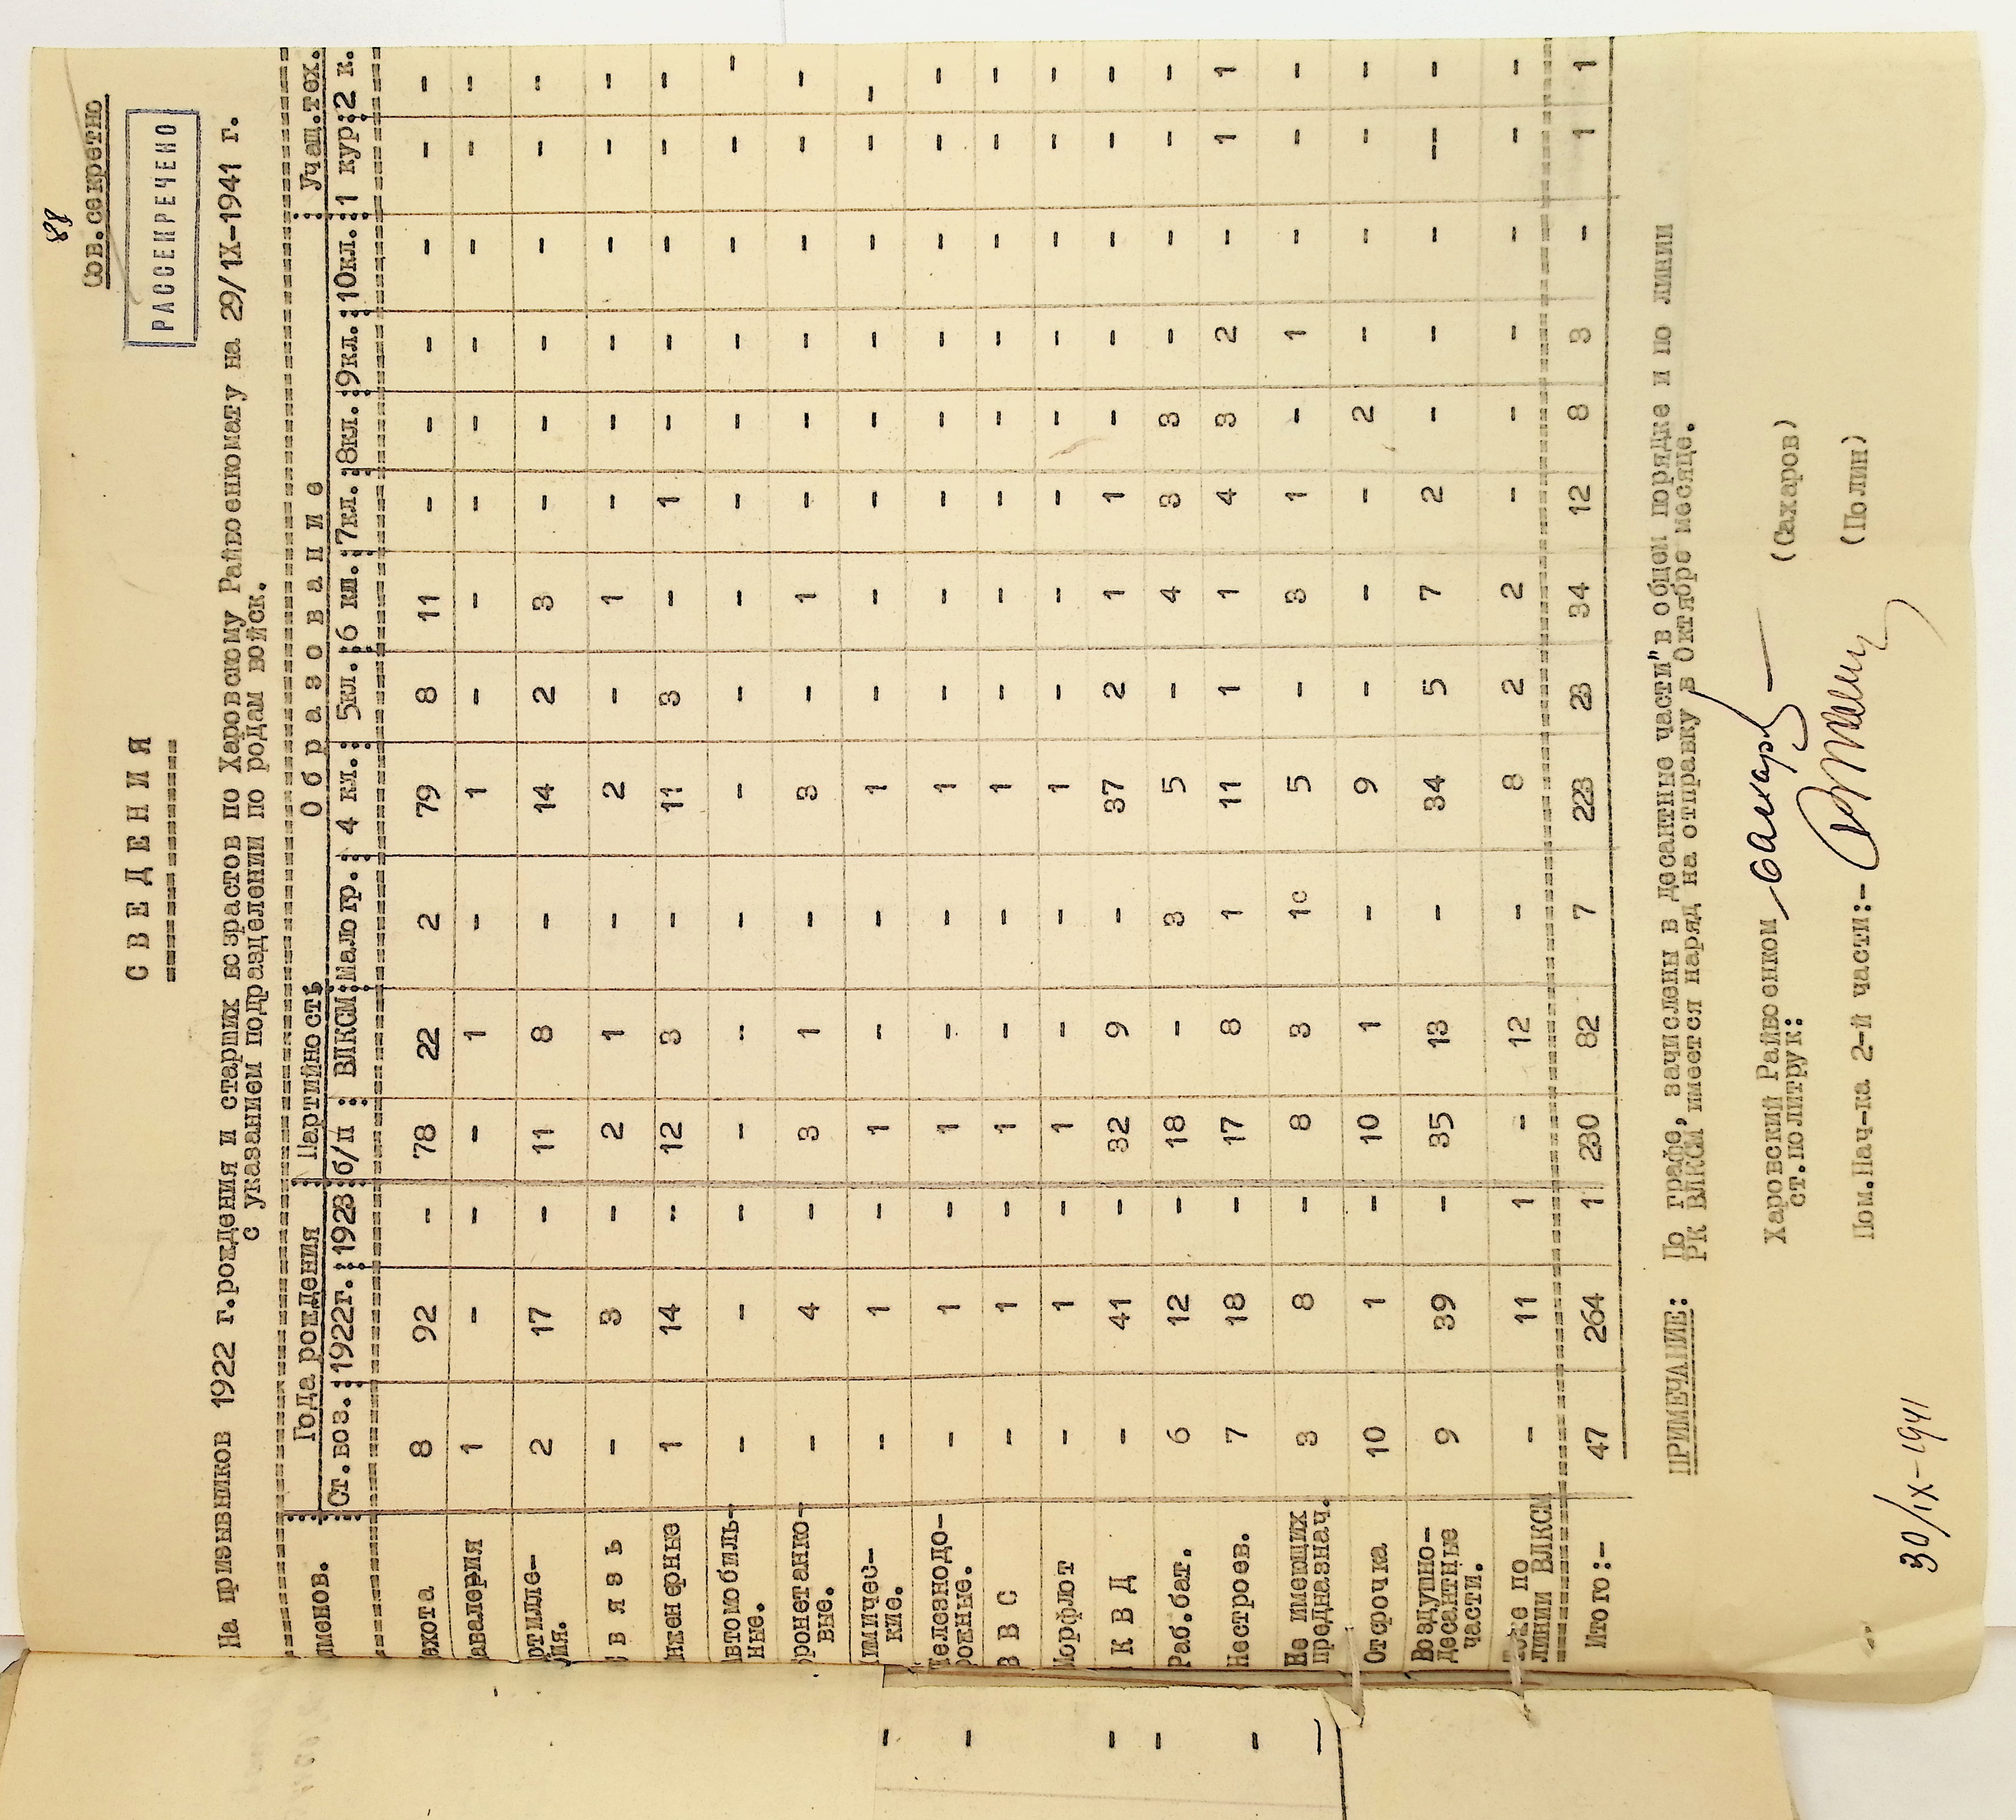 88
Сов.секретно
РАССЕКРЕЧЕНО
С В Е Д Е Н И Я
На призывников 1922 г.рождения и старших возрастов по Харовскому Райвоенкомату на 29/1Х-1941 г.
с указанием подразделении по родам войск.
именов. : Года рождения : Партийность : О б р а з о в а н и е : Учащ.тех.
Ст.воз.:1922г.:1923:б/п : ВЛКСМ:Малогр.: 4 кл.: 5кл.:6 кл.:7кл.:8кл.:9кл.:10кл.:1 кур:2 к.
ехота 8 92 - 78 22 2 79 8 11 - - - - - -
авалерия 1 - - - 1 - 1 - - - - - - - -
ртилле-
ия. 2 17 - 11 8 - 14 2 3 - - - - - -
в я з ь - 3 - 2 1 - 2 - 1 - - - - - -
нженерные 1 14 - 12 3 - 11 3 - 1 - - - - -
втомобиль-
ные. - - - - - - - - - - - - - - -
ронетанко-
вые. - 4 - 3 1 - 3 - 1 - - - - - -
имичес-
кие. - 1 - 1 - - 1 - - - - - - - -
Железнодо-
рожные. - 1 - 1 - - 1 - - - - - - - -
В В С - 1 - 1 - - 1 - - - - - - - -
Морфлот - 1 - 1 - - 1 - - - - - - - -
К В Д - 41 - 32 9 - 37 2 1 1 - - - - -
Раб.бат. 6 12 - 18 - 3 5 - 4 3 3 - - - -
Нестроев. 7 18 - 17 8 1 11 1 1 4 3 2 - 1 1
Не имеющих
предназнач. 3 8 - 8 3 1с 5 - 3 1 - 1 - - -
Отсрочка 10 1 - 10 1 - 9 - - - 2 - - - -
Воздушно-
десантные
части. 9 39 - 35 13 - 34 5 7 2 - - - -- -
Тоже по
линии ВЛКСМ - 11 1 - 12 - 8 2 2 - - - - - -
Итого:- 47 264 1 230 82 7 223 23 34 12 8 3 - 1 1
ПРИМЕЧАНИЕ: По графе, зачислены в десантные части"в общем порядке и по линии
РК ВЛКСМ имеется наряд на отправку в Октябре месяце.
Харовский Райвоенком
ст.политрук: (Сахаров)
Пом.Нач-ка 2-й части:- (Полин)
30/IX-1941